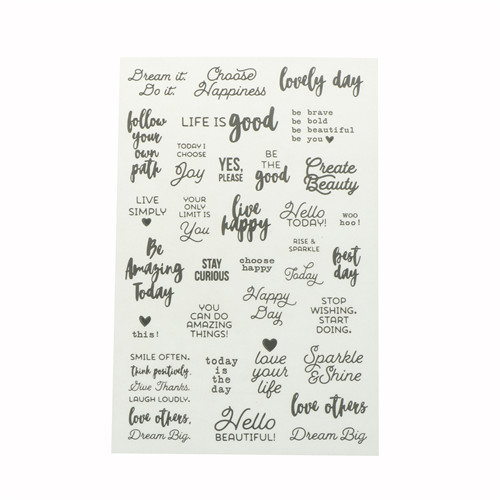 Dream it.
Do it.
Choose
Happiness
lovely day
follow
your
own
path
LIFE IS good
be brave
be bold
be beautiful
be you
TODAY I
CHOOSE
Joy
YES,
PLEASE
BE
THE
good
Create
Beauty
LIVE
SIMPLY
YOUR
ONLY
LIMIT IS
You
live
happy
Hello
TODAY!
woo
hoo!
Be
Amazing
Today
STAY
CURIOUS
choose
happy
RISE &
SPARKLE
Today
best
day
this!
YOU
CAN DO
AMAZING
THINGS!
Happy
Day
STOP
WISHING.
START
DOING.
SMILE OFTEN.
think positively.
Give Thanks.
LAUGH LOUDLY.
love others.
Dream Big.
today
is the
day
love
your
life
Sparkle
& Shine
Hello
BEAUTIFUL!
love others
Dream Big